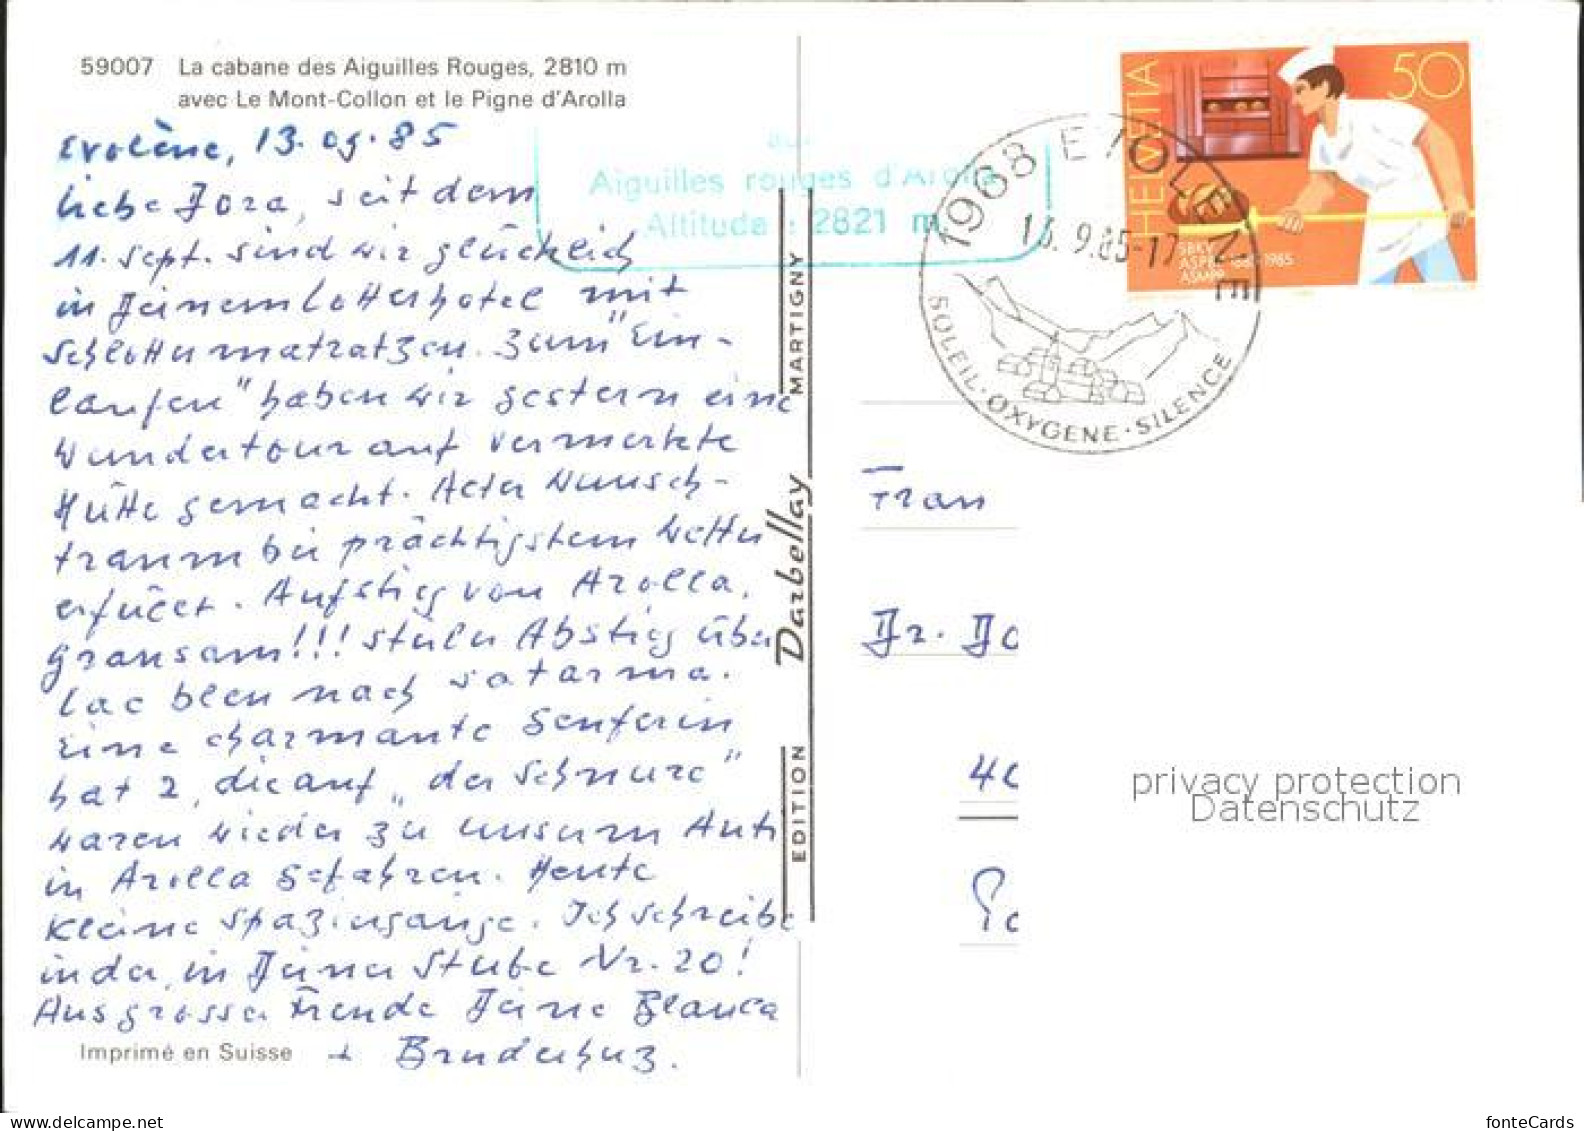 59007 La cabane des Aiguilles Rouges, 2810 m
avec Le Mont-Collon et le Pigne d'Arolla
Evolène, 13.09.85
Liebe Dora, seit dem
11. Sept. sind wir glücklich
in Deinem Lotterhotel mit
Schlottermatratzen. Zum "Ein-
laufen" haben wir gestern eine
Wundertour auf vermerkte
Hütte gemacht. Alter Wunsch-
traum bei prächtigstem Wetter
erfüllt. Aufstieg von Arolla,
grausam!!! Steiler Abstieg über
Lac bleu nach Satarma.
Eine charmante Genferin
hat 2, die auf "der Schnure"
waren wieder zu unserm Auto
in Arolla gefahren. Heute
kleine Spaziergänge. Ich schreibe
in der, in Deiner Stube Nr. 20!
Aus grosser Freude Deine Blanca
+ Bruderherz.
Imprimé en Suisse
EDITION Darbellay MARTIGNY
Aiguilles rouges d'Arolla
Altitude : 2821 m
1968 EVOLENE
13.9.85-17
SOLEIL·OXYGENE·SILENCE
HELVETIA
50
SBKV
ASPB 1885-1985
ASMPP
Frau
Dr. Do
40
privacy protection
Datenschutz
www.delcampe.net
fonteCards